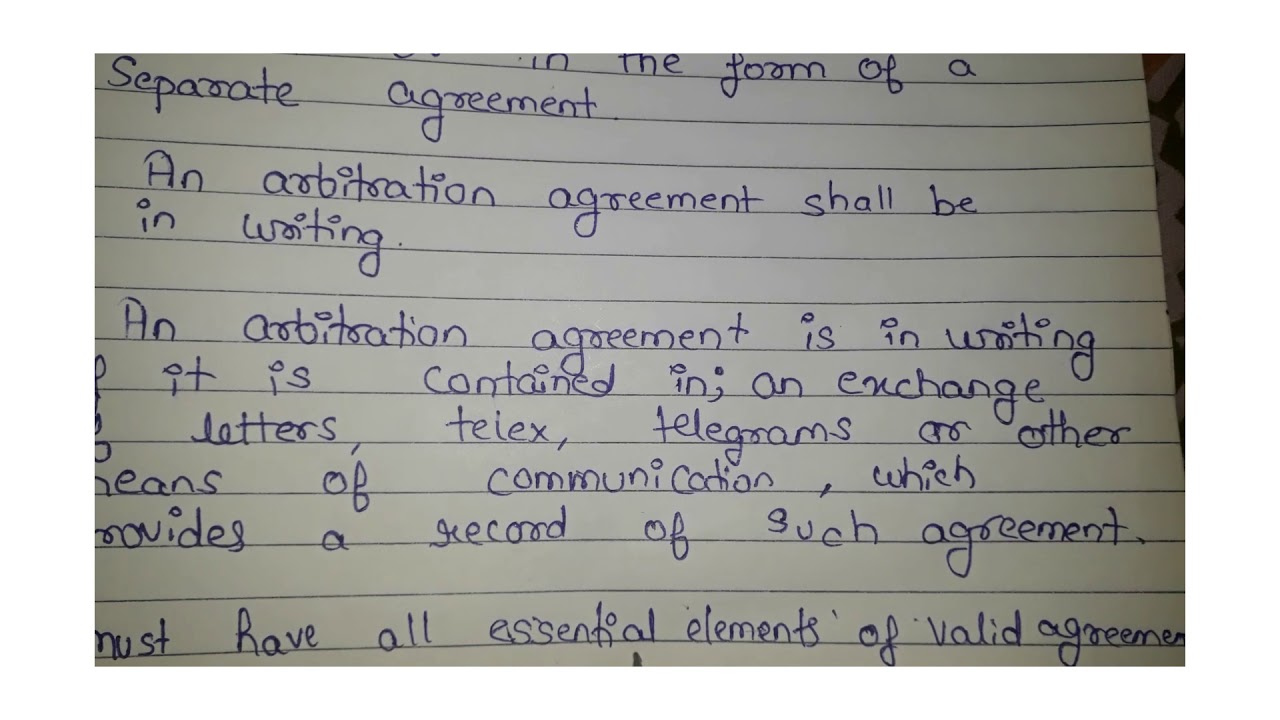 in the form of a
Separate agreement
An arbitration agreement shall be
in writing.
An arbitration agreement is in writing
it is contained in; an exchange
letters, telex, telegrams or other
eans of communication, which
rovides a record of such agreement.
must have all essential elements of valid agreemen